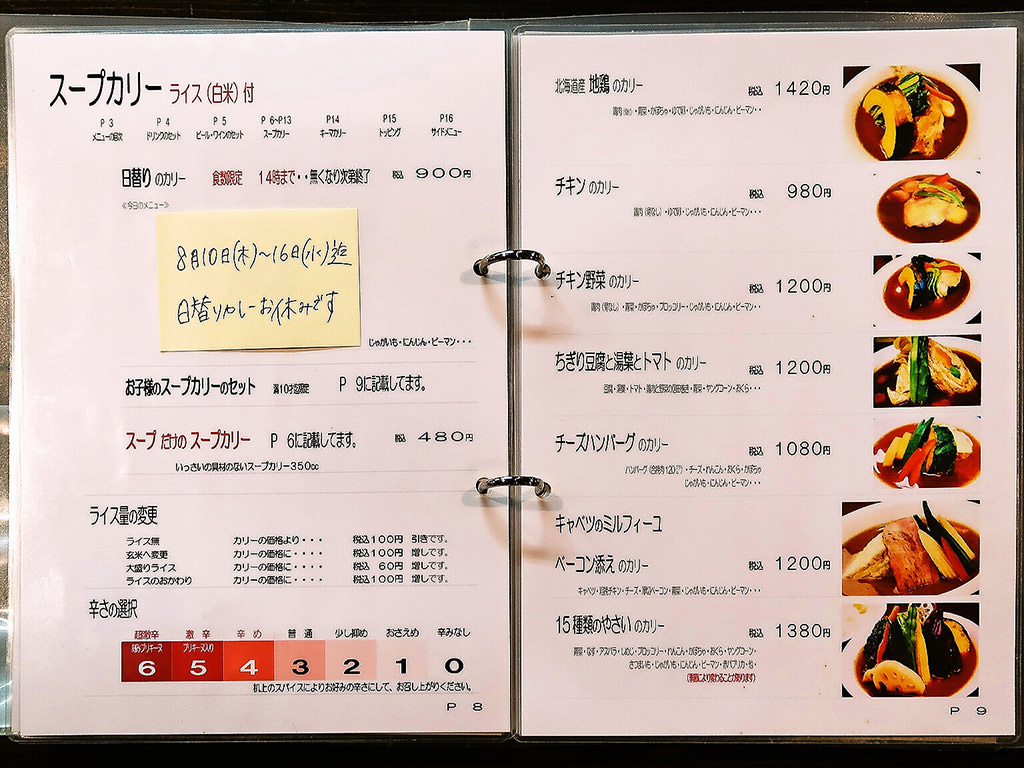 スープカリー ライス(白米)付
P 3 P 4 P 5 P 6~P13 P14 P15 P16
メニューの目次 ドリンクのセット ビール・ワインのセット スープカリー キーマカリー トッピング サイドメニュー
日替り のカリー 食数限定 14時まで・・無くなり次第終了 税込 900円
≪今日のメニュー≫
8月10日(木)~16日(水)迄
日替りカレーお休みです
じゃがいも・にんじん・ピーマン・・・
お子様のスープカリーのセット 満10才迄限定 P 9に記載してます。
スープ だけの スープカリー P 6に記載してます。 税込 480円
いっさいの具材のないスープカリー350cc
ライス量の変更
ライス無 カリーの価格より・・・・ 税込100円 引きです。
玄米へ変更 カリーの価格に・・・・ 税込100円 増しです。
大盛りライス カリーの価格に・・・・ 税込 60円 増しです。
ライスのおかわり カリーの価格に・・・・ 税込100円 増しです。
辛さの選択
超激辛 激 辛 辛 め 普 通 少し抑め おさえめ 辛みなし
プリッキーヌ入り
6 5 4 3 2 1 0
机上のスパイスによりお好みの辛さにして、お召し上がりください。
P 8
北海道産 地鶏 のカリー 税込 1420円
・青菜・かぼちゃ・ゆで卵・じゃがいも・にんじん・ピーマン・・
チキン のカリー 税込 980円
鶏肉(骨なし)・ゆで卵・じゃがいも・にんじん・ピーマン・・・
チキン野菜 のカリー 税込 1200円
鶏肉(骨なし)・青菜・かぼちゃ・ブロッコリー・じゃがいも・にんじん・ピーマン・・・
ちぎり豆腐と湯葉とトマト のカリー 税込 1200円
豆腐・湯葉・トマト・鶏肉と野菜の湯葉巻き・青菜・ヤングコーン・おくら・・・
チーズハンバーグ のカリー 税込 1080円
ハンバーグ(合挽肉120㌘)・チーズ・れんこん・おくら・かぼちゃ
じゃがいも・にんじん・ピーマン・・・
キャベツのミルフィーユ
ベーコン添え のカリー 税込 1200円
キャベツ・・チーズ・厚切ベーコン・青菜・じゃがいも・にんじん・ピーマン・・・
15種類のやさい のカリー 税込 1380円
青菜・なす・アスパラ・しめじ・ブロッコリー・れんこん・かぼちゃ・おくら・ヤングコーン・
さつまいも・じゃがいも・にんじん・ピーマン・赤パプリカ・他・
(季節により変わることが有ります)
P 9